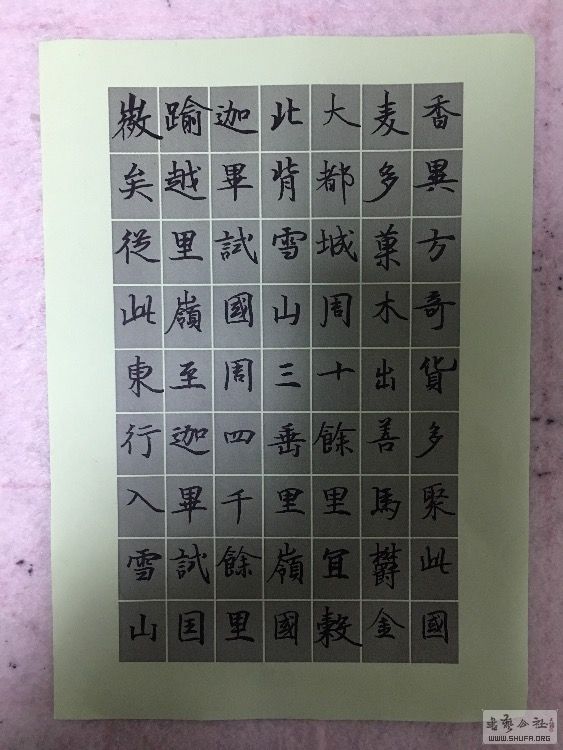 徵矣從此東行入雪山
踰越里嶺至迦畢試囯
迦畢試國周四千餘里
北背雪山三垂里嶺國
大都城周十餘里宜穀
麦多菓木出善馬鬱金
香異方奇貨多聚此國
书艺公社
WWW.SHUFA.ORG